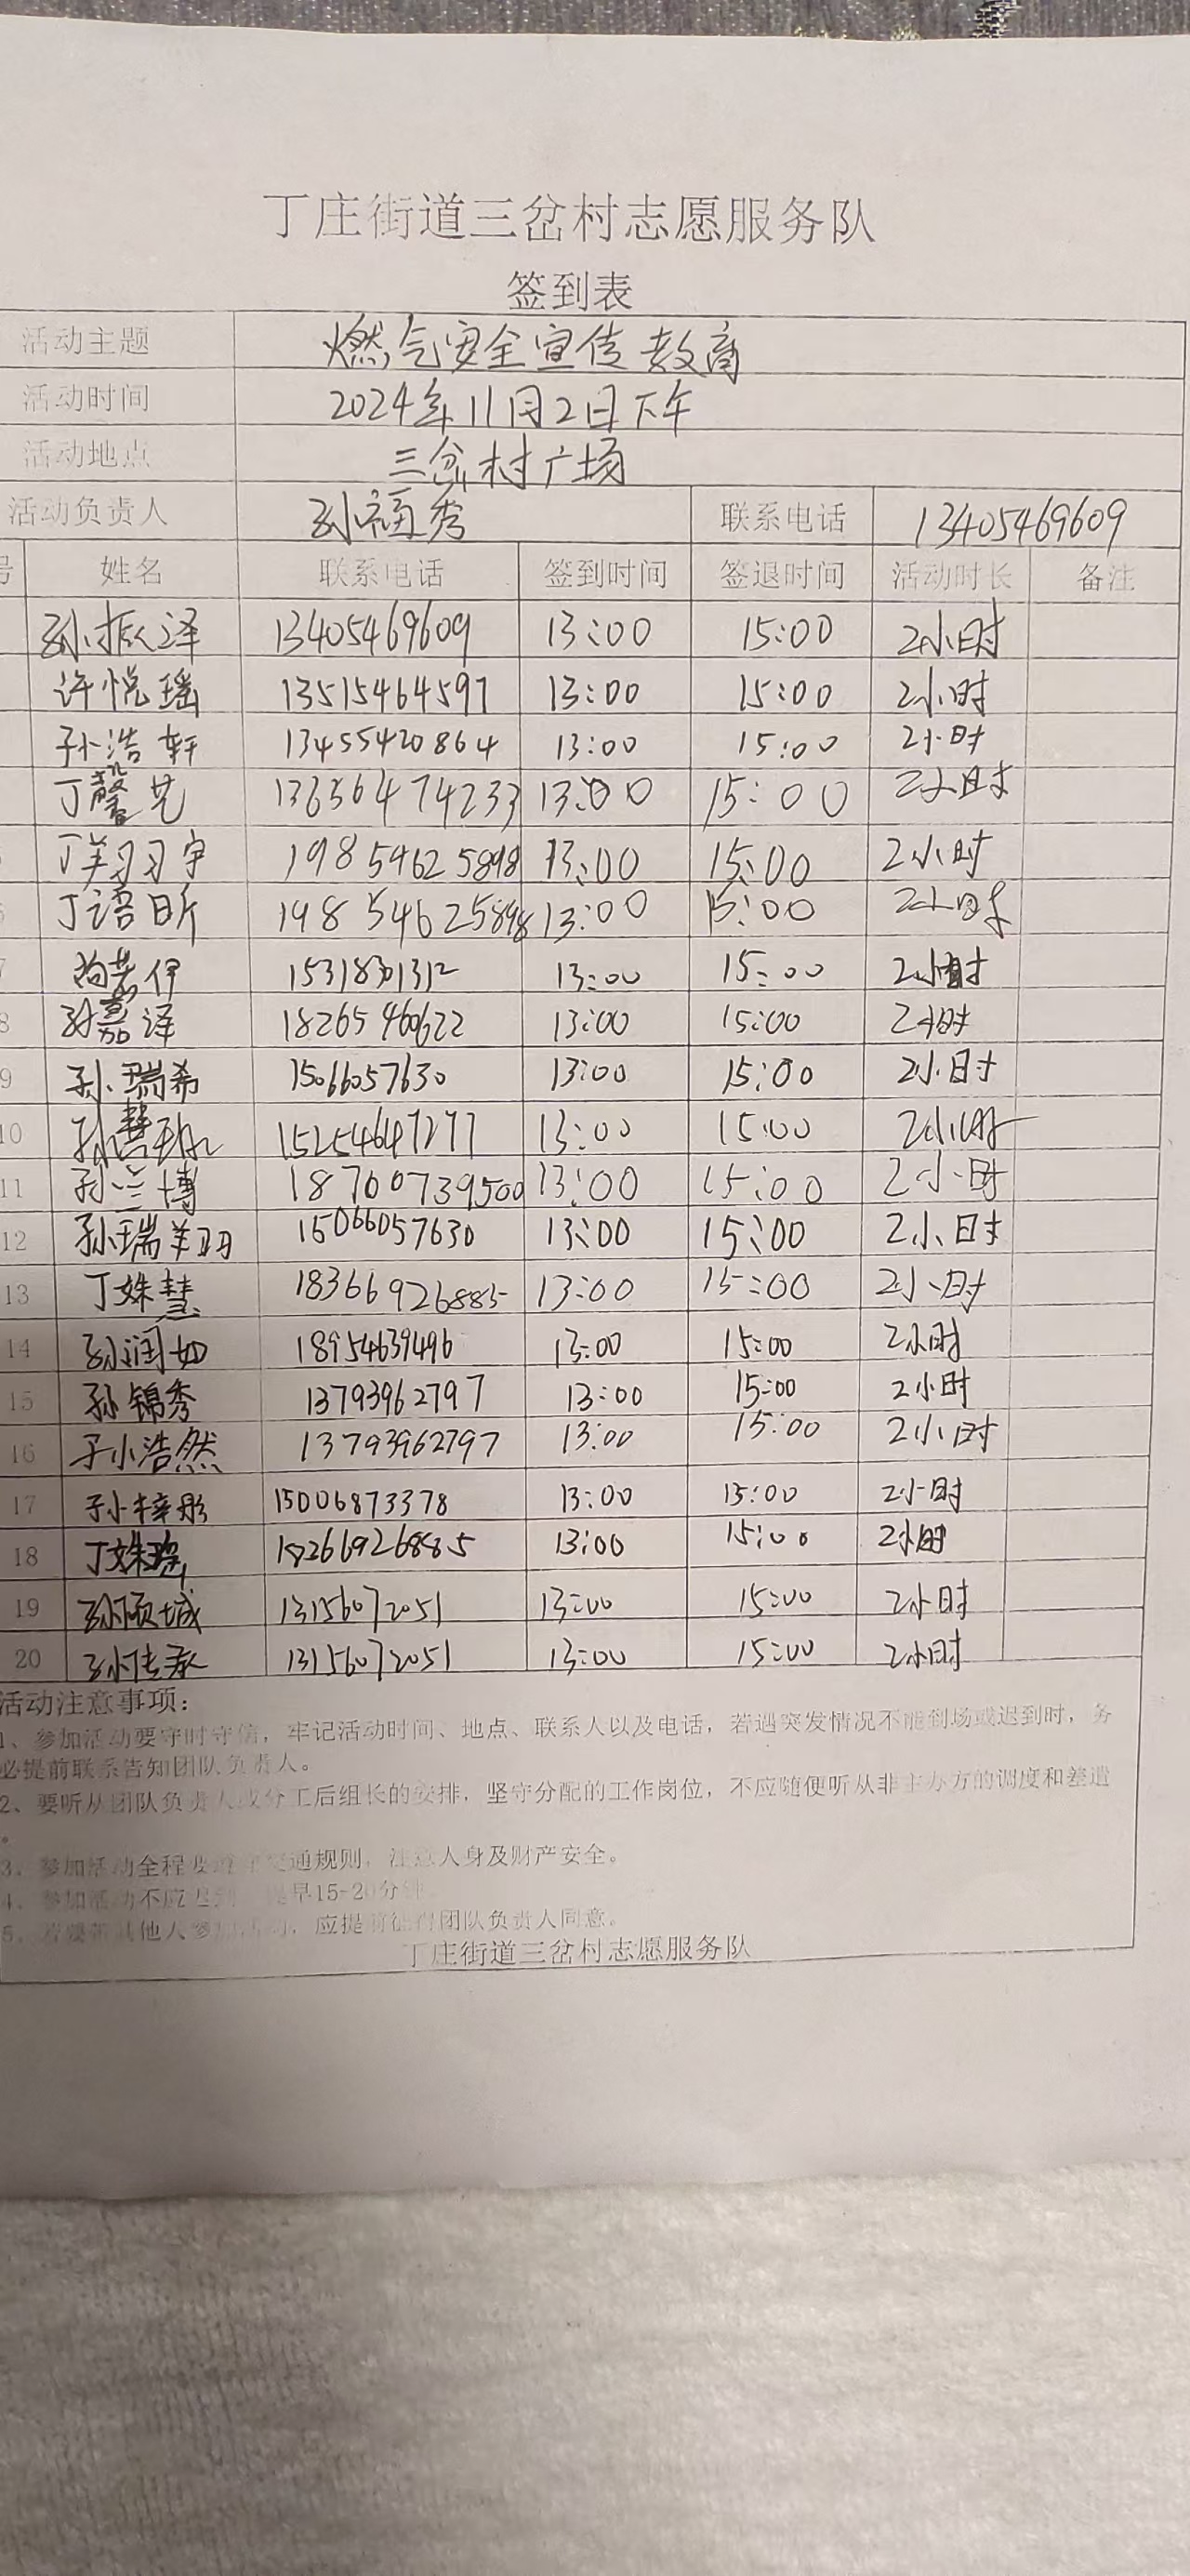 丁庄街道三岔村志愿服务队
签到表
活动主题 燃气安全宣传教育
活动时间 2024年11月2日下午
活动地点 三岔村广场
活动负责人 孙福秀 联系电话 13405469609
号 姓名 联系电话 签到时间 签退时间 活动时长 备注
孙振泽 13405469609 13:00 15:00 2小时
许悦瑶 13515464597 13:00 15:00 2小时
孙浩轩 13455420864 13:00 15:00 2小时
丁馨艺 13656474233 13:00 15:00 2小时
丁翔宇 19854625898 13:00 15:00 2小时
丁语昕 19854625898 13:00 15:00 2小时
7 尚若伊 15318301312 13:00 15:00 2小时
8 孙嘉泽 18265460622 13:00 15:00 2小时
9 孙瑞希 15066057630 13:00 15:00 2小时
10 孙慧 15254647277 13:00 15:00 2小时
11 孙兰博 18760073950 13:00 15:00 2小时
12 孙瑞翔 15066057630 13:00 15:00 2小时
13 丁姝慧 18366926885 13:00 15:00 2小时
14 孙润如 18954639496 13:00 15:00 2小时
15 孙锦秀 13793962797 13:00 15:00 2小时
16 孙浩然 13793962797 13:00 15:00 2小时
17 孙梓彤 15006873378 13:00 15:00 2小时
18 丁姝瑶 13:00 15:00 2小时
19 孙倾城 13156072051 13:00 15:00 2小时
20 孙传承 13156072051 13:00 15:00 2小时
活动注意事项：
1、参加活动要守时守信，牢记活动时间、地点、联系人以及电话，若遇突发情况不能到场或迟到时，务
必提前联系告知团队负责人。
2、要听从团队负责人或分工后组长的安排，坚守分配的工作岗位，不应随便听从非主办方的调度和差遣
。
3、参加活动全程要遵守交通规则，注意人身及财产安全。
4、参加活动不应迟到，提早15-20分钟
5、若要带其他人参加活动，应提前征得团队负责人同意。
丁庄街道三岔村志愿服务队